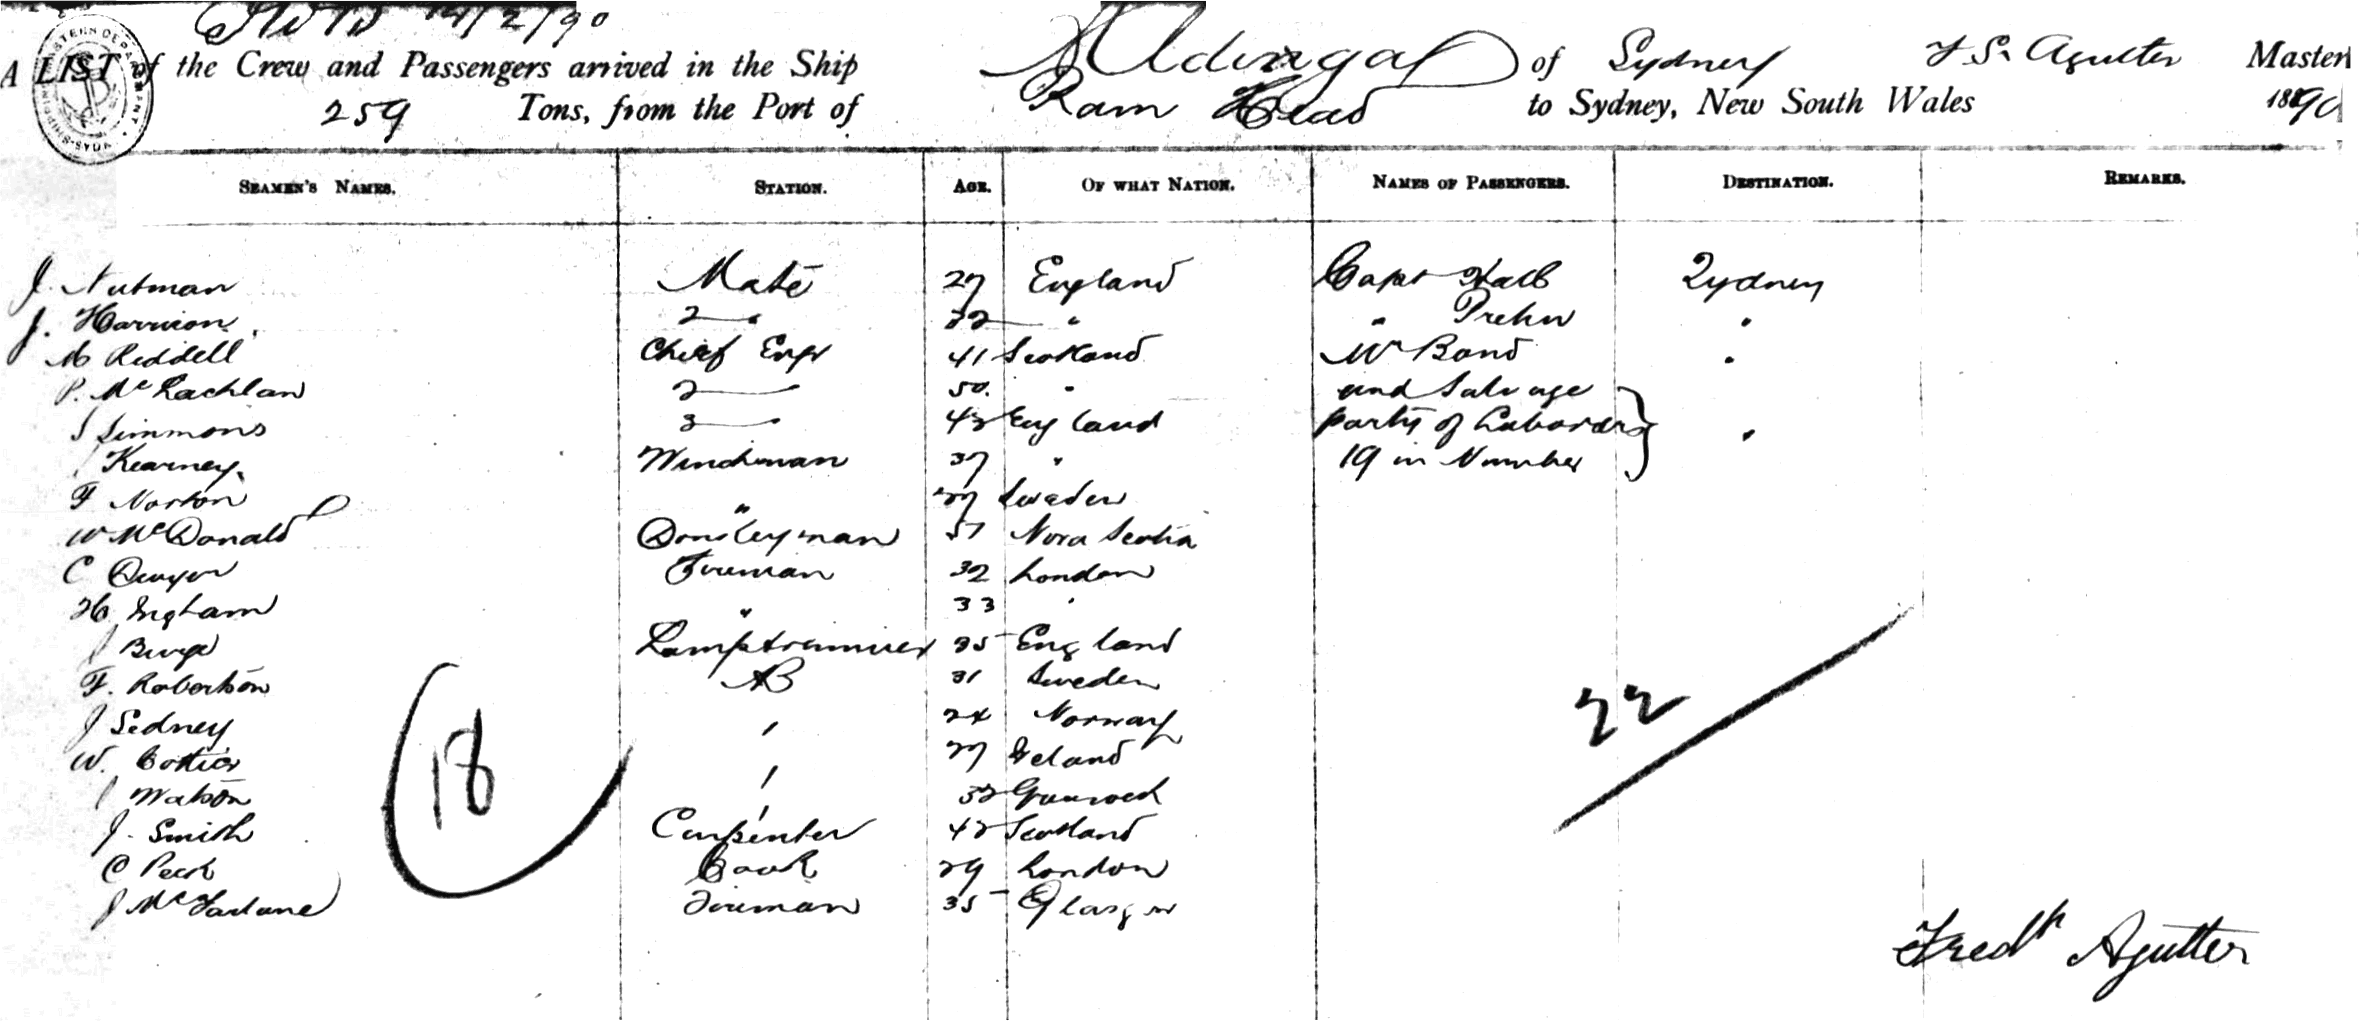 14/2/90
A LIST of the Crew and Passengers arrived in the Ship Aldinga of Sydney F. S. Agutter Master
259 Tons, from the Port of Ram Head to Sydney, New South Wales 1890
SEAMEN'S NAMES. STATION. AGE. OF WHAT NATION. NAMES OF PASSENGERS. DESTINATION. REMARKS.
J. Nutman Mate 27 England Capt Hall Sydney
J. Harrison 2 " 32 " " Prehn "
M Riddell Chief Engr 41 Scotland Mr Band "
P. McLachlan 2 50. " and Salvage
J Simmons 3 42 England party of Laborers "
J Kearney. Winchman 37 " 19 in Number
F Norton " 27 Sweden
W McDonald Donkeyman 51 Nova Scotia
C Dwyer Fireman 32 London
H Ingham " 33 "
J Burge Lamptrimmer 35 England
F. Robertson AB 31 Sweden
J Sedney " 24 Norway
W. Cottier " 27 Ireland
J Watson " 32 Greenock
J. Smith Carpenter 42 Scotland
C Peck Cook 29 London
J McFarlane Fireman 35 Glasgow
18
22
Fredk Agutter